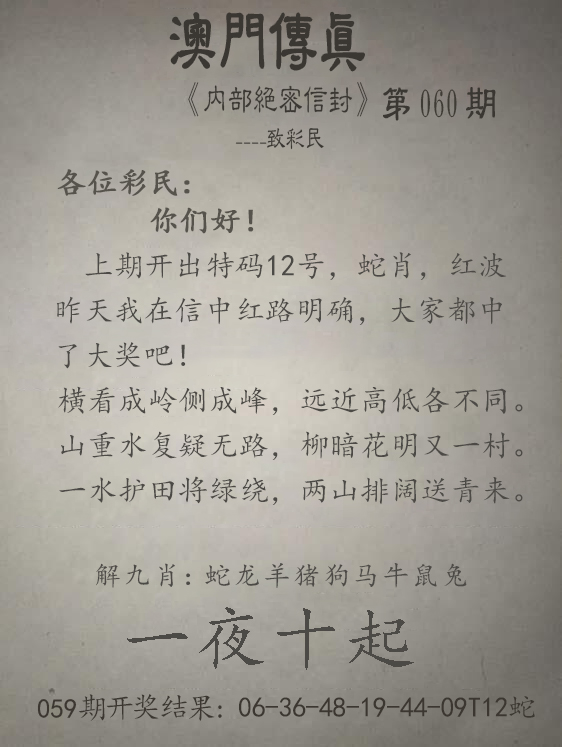 澳門傳真
《内部絕密信封》第060期
----致彩民
各位彩民：
你们好！
上期开出特码12号，蛇肖，红波
昨天我在信中红路明确，大家都中
了大奖吧！
横看成岭侧成峰，远近高低各不同。
山重水复疑无路，柳暗花明又一村。
一水护田将绿绕，两山排阔送青来。
解九肖：蛇龙羊猪狗马牛鼠兔
一夜十起
059期开奖结果：06-36-48-19-44-09T12蛇